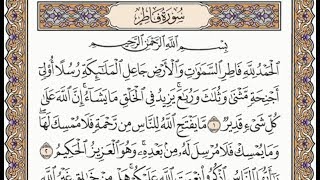 سُورَةُ فَاطِرٍ
بِسْمِ ٱللَّهِ ٱلرَّحْمَٰنِ ٱلرَّحِيمِ
ٱلْحَمْدُ لِلَّهِ فَاطِرِ ٱلسَّمَٰوَٰتِ وَٱلْأَرْضِ جَاعِلِ ٱلْمَلَٰٓئِكَةِ رُسُلًا أُو۟لِىٓ
أَجْنِحَةٍ مَّثْنَىٰ وَثُلَٰثَ وَرُبَٰعَ ۚ يَزِيدُ فِى ٱلْخَلْقِ مَا يَشَآءُ ۚ إِنَّ ٱللَّهَ عَلَىٰ
كُلِّ شَىْءٍ قَدِيرٌ ١ مَّا يَفْتَحِ ٱللَّهُ لِلنَّاسِ مِن رَّحْمَةٍ فَلَا مُمْسِكَ لَهَا ۖ
وَمَا يُمْسِكْ فَلَا مُرْسِلَ لَهُۥ مِنۢ بَعْدِهِۦ ۚ وَهُوَ ٱلْعَزِيزُ ٱلْحَكِيمُ ٢
يَٰٓأَيُّهَا ٱلنَّاسُ ٱذْكُرُوا۟ نِعْمَتَ ٱللَّهِ عَلَيْكُمْ ۚ هَلْ مِنْ خَٰلِقٍ غَيْرُ ٱللَّهِ